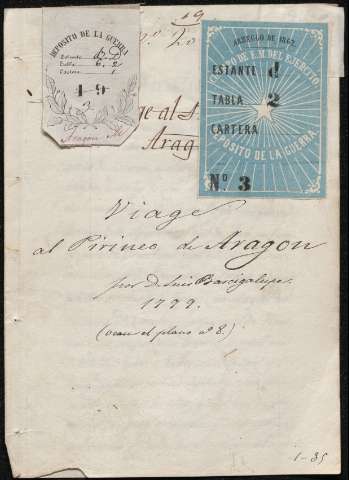 19
DEPÓSITO DE LA GUERRA
Estante
Tabla 6. 2
Cartera 1
1-9
3
Aragon
ARREGLO DE 186
DE E.M. DEL EJERCITO
ESTANTE d
TABLA 2
CARTERA
DEPÓSITO DE LA GUERRA.
Nº 3
ge al
Arag
Viage
al Pirineo de Aragon
por D. Luis Bacigalupe.
1799.
(vease el plano nº 8.)
1-35